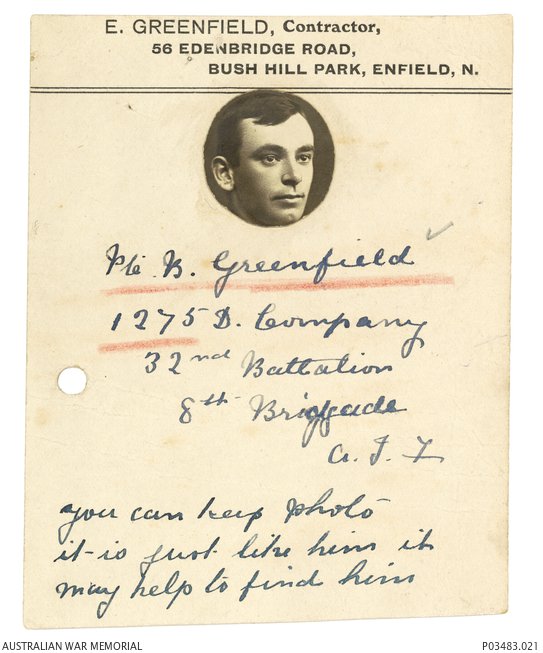 E. GREENFIELD, Contractor,
56 EDENBRIDGE ROAD,
BUSH HILL PARK, ENFIELD, N.
Pte B. Greenfield
1275 D. Company
32nd Battalion
8th Brigade
A. I. F
you can keep photo
it is just like him it
may help to find him
AUSTRALIAN WAR MEMORIAL P03483.021